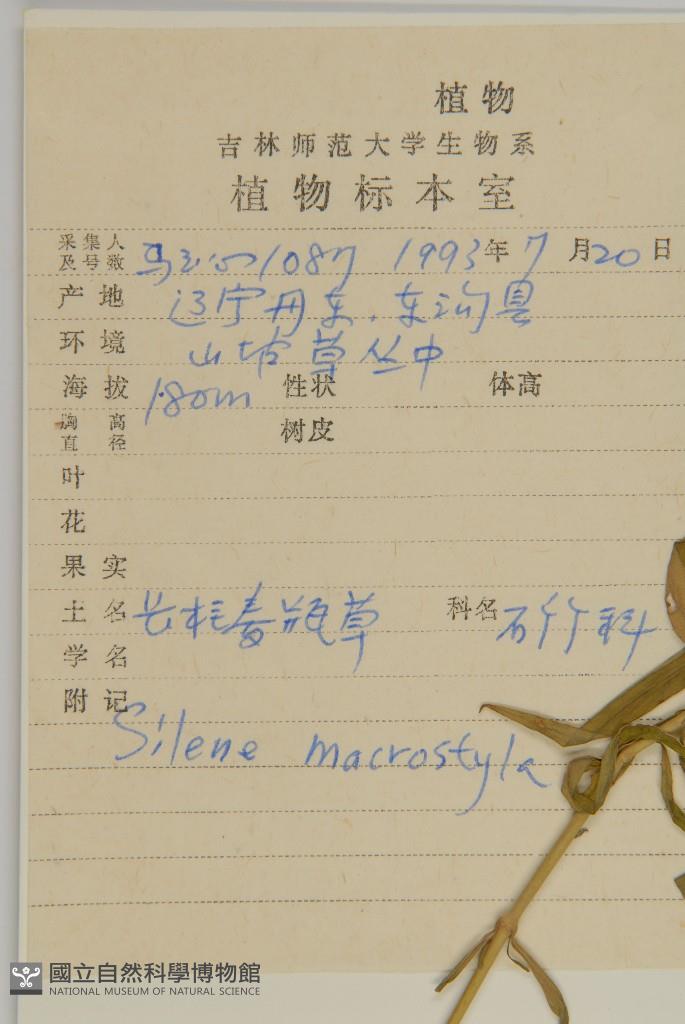 植物
吉林师范大学生物系
植物标本室
采集人及号数 马玉心1087 1993年7月20日
产地 辽宁丹东.东沟县
环境 山坡草丛中
海拔 180m 性状 体高
胸高直径 树皮
叶
花
果实
土名 长柱麦瓶草 科名 石竹科
学名
附记
Silene macrostyla
國立自然科學博物館
NATIONAL MUSEUM OF NATURAL SCIENCE